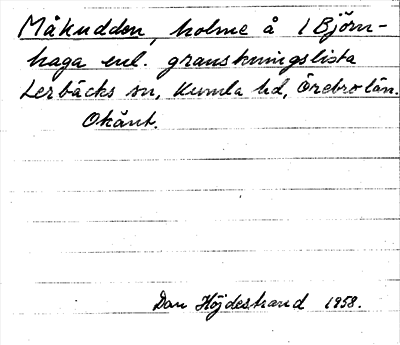 Måkudden, holme å 1 Björn-
haga enl. granskningslista
Lerbäcks sn, Kumla hd, Örebro län.
Okänt.
Dan Höjdestrand 1958.